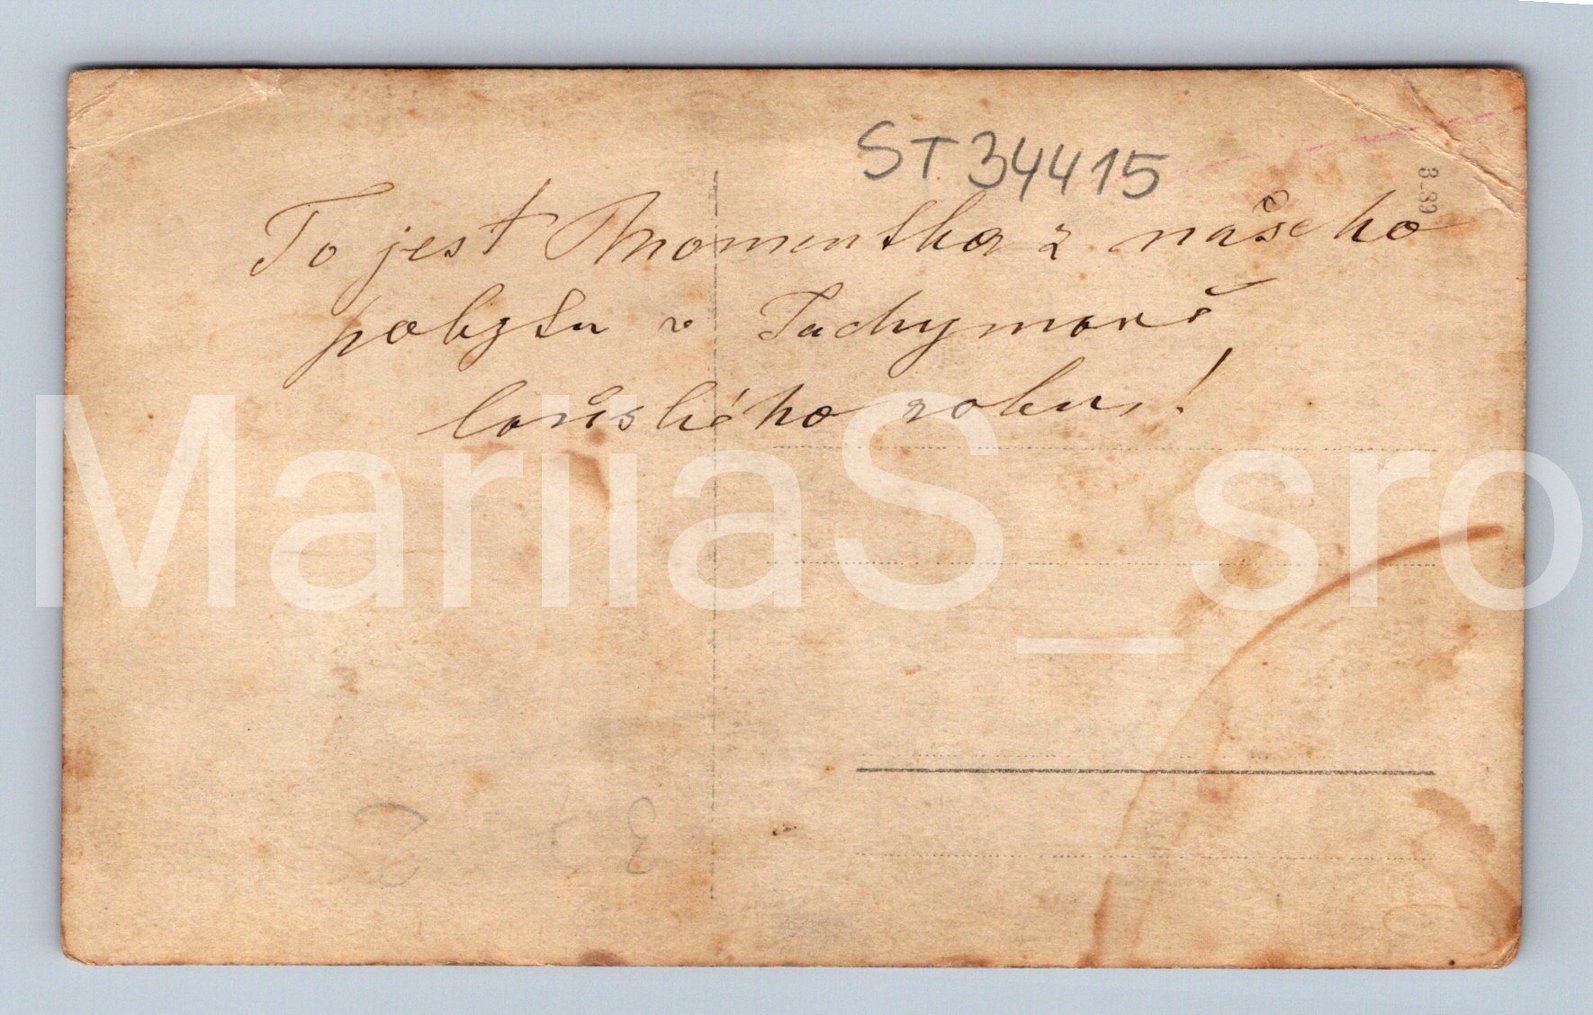 ST 34415
3_39
To jest Momentka z našeho
pobytu v Jáchymově
loňského roku!
3
MariiaS_sro